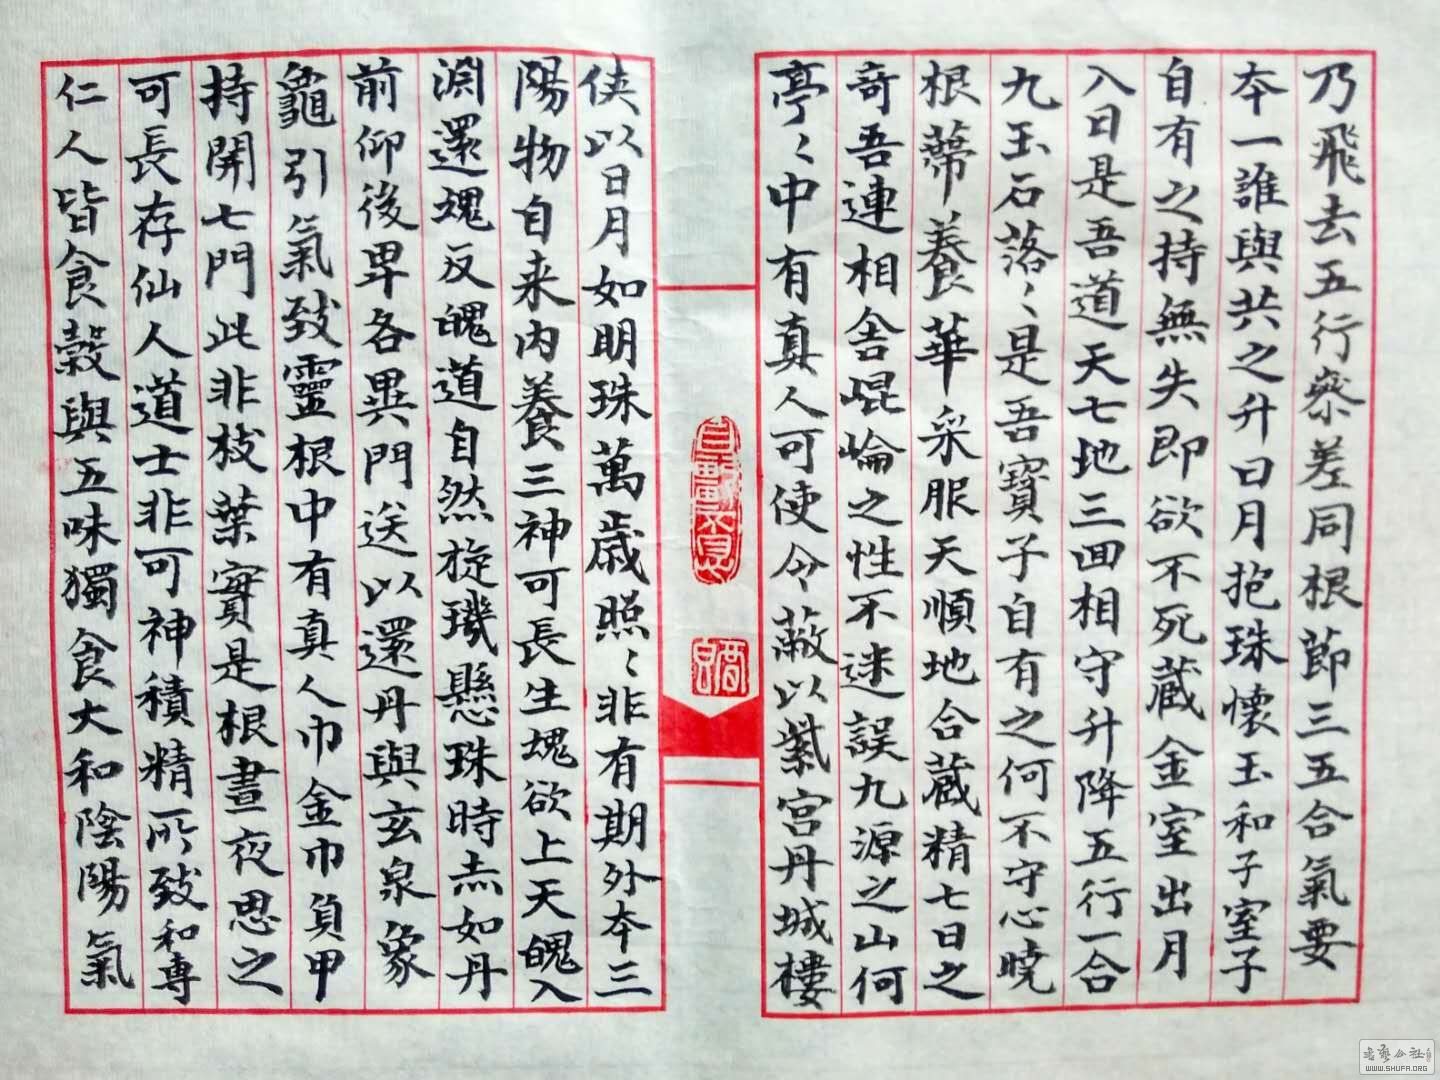 乃飛去五行參差同根節三五合氣要
夲一誰與共之升日月抱珠懷玉和子室子
自有之持無失即欲不死藏金室出月
入日是吾道天七地三回相守升降五行一合
九玉石落〻是吾寶子自有之何不守心曉
根蔕養華采服天順地合藏精七日之
竒吾連相舍崐崘之性不迷誤九源之山何
亭〻中有真人可使令蔽以紫宮丹城樓
俠以日月如明珠萬歲照〻非有期外夲三
陽物自来内養三神可長生魂欲上天魄入
淵還魂反魄道自然旋璣懸珠時赤如丹
前仰後卑各異門送以還丹與玄泉象
龜引氣致靈根中有真人巾金巾負甲
持開七門此非枝葉實是根晝夜思之
可長存仙人道士非可神積精所致和専
仁人皆食穀與五味獨食大和陰陽氣
WWW.SHUFA.ORG